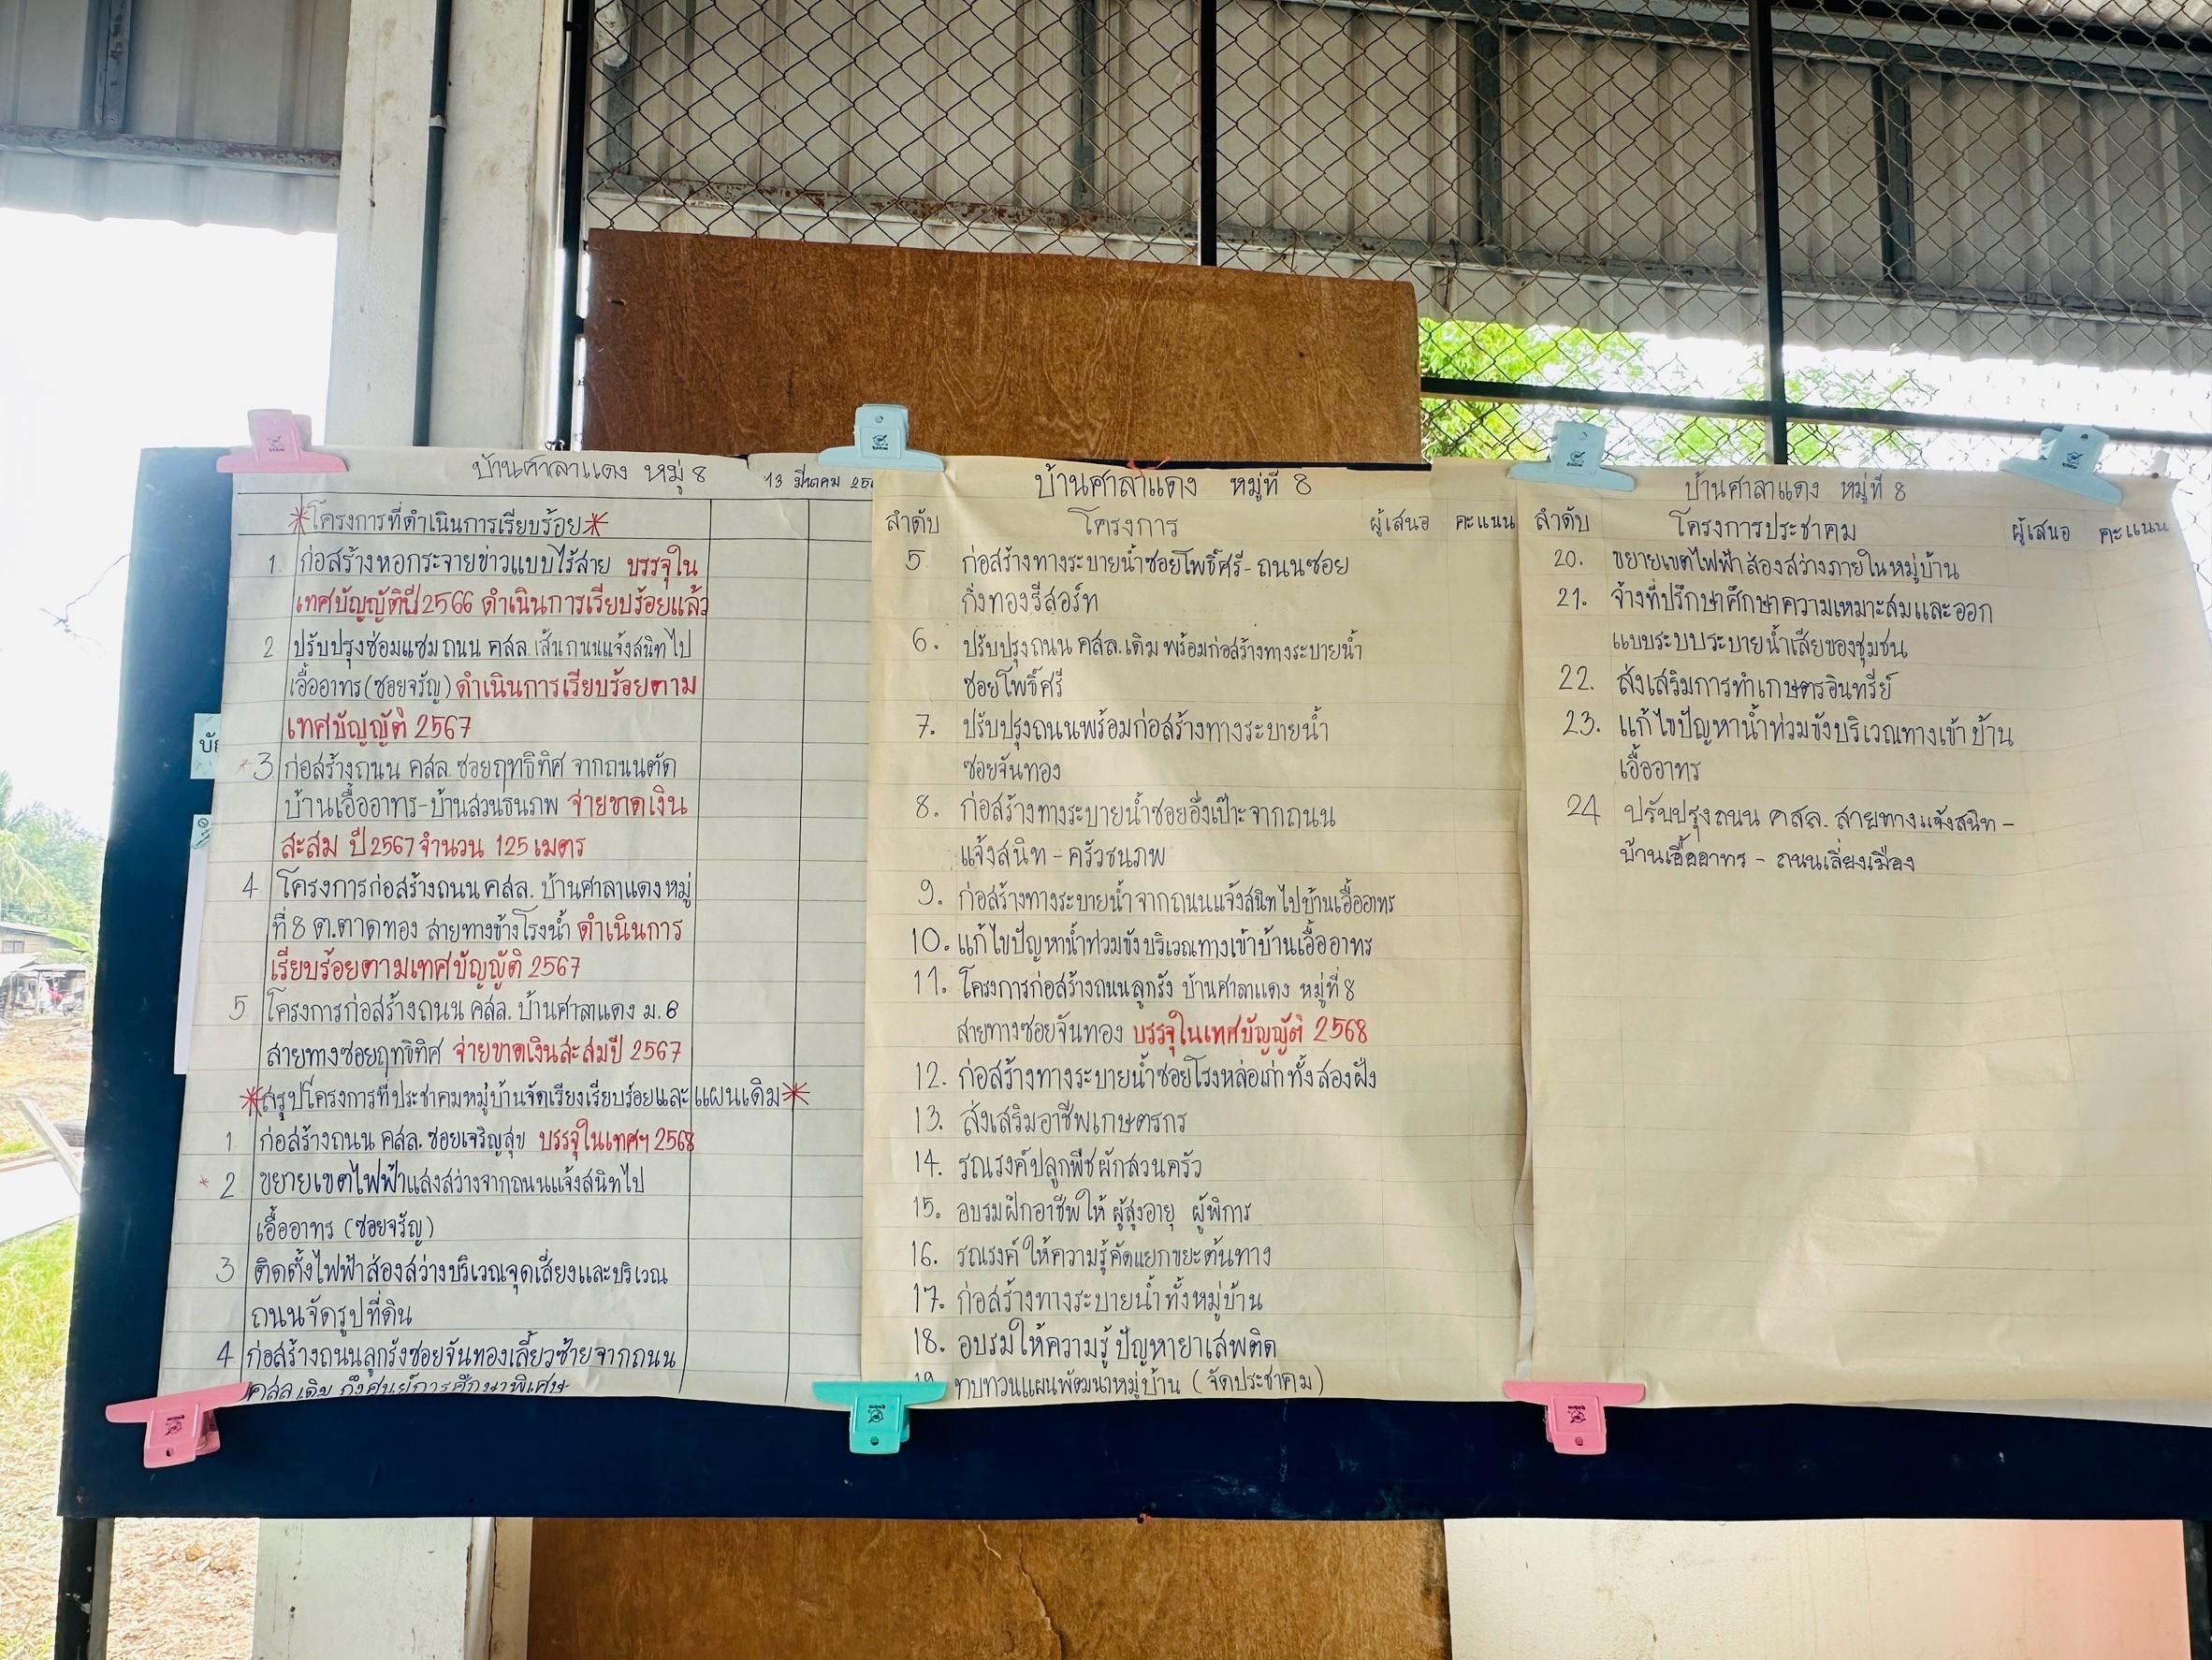 บ้านศาลาแดง หมู่ 8
13 มีนาคม 256
*โครงการที่ดำเนินการเรียบร้อย*
1. ก่อสร้างหอกระจายข่าวแบบไร้สาย บรรจุใน
เทศบัญญัติปี 2566 ดำเนินการเรียบร้อยแล้ว
2 ปรับปรุงซ่อมแซมถนน คสล. เส้นถนนแจ้งสนิทไป
เอื้ออาทร (ซอยจรัญ) ดำเนินการเรียบร้อยตาม
เทศบัญญัติ 2567
*3 ก่อสร้างถนน คสล. ซอยฤทธิทิศ จากถนนตัด
บ้านเอื้ออาทร-บ้านสวนธนภพ จ่ายขาดเงิน
สะสม ปี 2567 จำนวน 125 เมตร
4 โครงการก่อสร้างถนน คสล. บ้านศาลาแดง หมู่
ที่ 8 ต.ตาดทอง สายทางข้างโรงน้ำ ดำเนินการ
เรียบร้อยตามเทศบัญญัติ 2567
5 โครงการก่อสร้างถนน คสล. บ้านศาลาแดง ม.8
สายทางซอยฤทธิทิศ จ่ายขาดเงินสะสมปี 2567
*สรุปโครงการที่ประชาคมหมู่บ้านจัดเรียงเรียบร้อยและแผนเดิม*
1 ก่อสร้างถนน คสล. ซอยเจริญสุข บรรจุในเทศฯ 2568
*2 ขยายเขตไฟฟ้าแสงสว่างจากถนนแจ้งสนิทไป
เอื้ออาทร (ซอยจรัญ)
3 ติดตั้งไฟฟ้าส่องสว่างบริเวณจุดเสี่ยงและบริเวณ
ถนนจัดรูปที่ดิน
4 ก่อสร้างถนนลูกรังซอยจันทองเลี้ยวซ้ายจากถนน
คสล เดิม ถึงศูนย์การศึกษาพิเศษ
บ้านศาลาแดง หมู่ที่ 8
ลำดับ โครงการ ผู้เสนอ คะแนน
5 ก่อสร้างทางระบายน้ำซอยโพธิ์ศรี-ถนนซอย
กิ่งทองรีสอร์ท
6. ปรับปรุงถนน คสล. เดิม พร้อมก่อสร้างทางระบายน้ำ
ซอยโพธิ์ศรี
7. ปรับปรุงถนนพร้อมก่อสร้างทางระบายน้ำ
ซอยจันทอง
8. ก่อสร้างทางระบายน้ำซอยอึ่งเป๊าะจากถนน
แจ้งสนิท - ครัวธนภพ
9. ก่อสร้างทางระบายน้ำ จากถนนแจ้งสนิทไปบ้านเอื้ออาทร
10. แก้ไขปัญหาน้ำท่วมขังบริเวณทางเข้าบ้านเอื้ออาทร
11. โครงการก่อสร้างถนนลูกรัง บ้านศาลาแดง หมู่ที่ 8
สายทางซอยจันทอง บรรจุในเทศบัญญัติ 2568
12. ก่อสร้างทางระบายน้ำซอยโรงหล่อเก่าทั้งสองฝั่ง
13. ส่งเสริมอาชีพเกษตรกร
14. รณรงค์ปลูกพืชผักสวนครัว
15. อบรมฝึกอาชีพให้ ผู้สูงอายุ ผู้พิการ
16. รณรงค์ ให้ความรู้คัดแยกขยะต้นทาง
17. ก่อสร้างทางระบายน้ำทั้งหมู่บ้าน
18. อบรมให้ความรู้ ปัญหายาเสพติด
19 ทบทวนแผนพัฒนาหมู่บ้าน (จัดประชาคม)
บ้านศาลาแดง หมู่ที่ 8
ลำดับ โครงการประชาคม ผู้เสนอ คะแนน
20. ขยายเขตไฟฟ้าส่องสว่างภายในหมู่บ้าน
21. จ้างที่ปรึกษาศึกษาความเหมาะสมและออก
แบบระบบระบายน้ำเสียของชุมชน
22. ส่งเสริมการทำเกษตรอินทรีย์
23. แก้ไขปัญหาน้ำท่วมขังบริเวณทางเข้า บ้าน
เอื้ออาทร
24 ปรับปรุงถนน คสล. สายทางแจ้งสนิท -
บ้านเอื้ออาทร - ถนนเลี่ยงเมือง